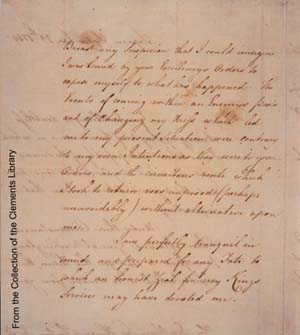 Breast any Suspicion that I could imagine
I was bound by your Excellencys Orders to
expose myself to what has happened. The
Events of coming within an Enemys posts
and of Changing my dress which led
me to my present situation were contrary
to my own Intentions as they were to your
Orders, and the circuitous route which
I took to return was imposed (perhaps
unavoidably) without alternative upon
me.
I am perfectly tranquil in
mind and prepared for any Fate to
which an honest Zeal for my Kings
Service may have devoted me.
From the Collection of the Clements Library